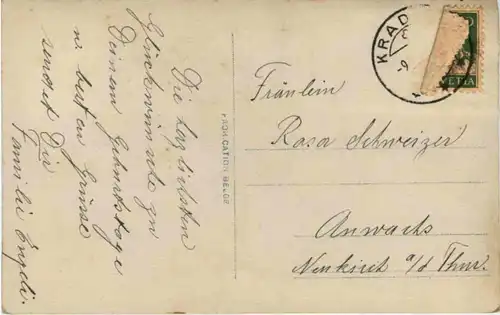 Die herzlichsten
Glückwünsche zu
Deinem Geburtstage
u. besten Grüsse
sendet Dir
Familie Engeli.
FABRICATION BELGE
Fräulein
Rosa Schweizer
Anwachs
Neukirch a/d Thur.
KRAD
-9
ETIA